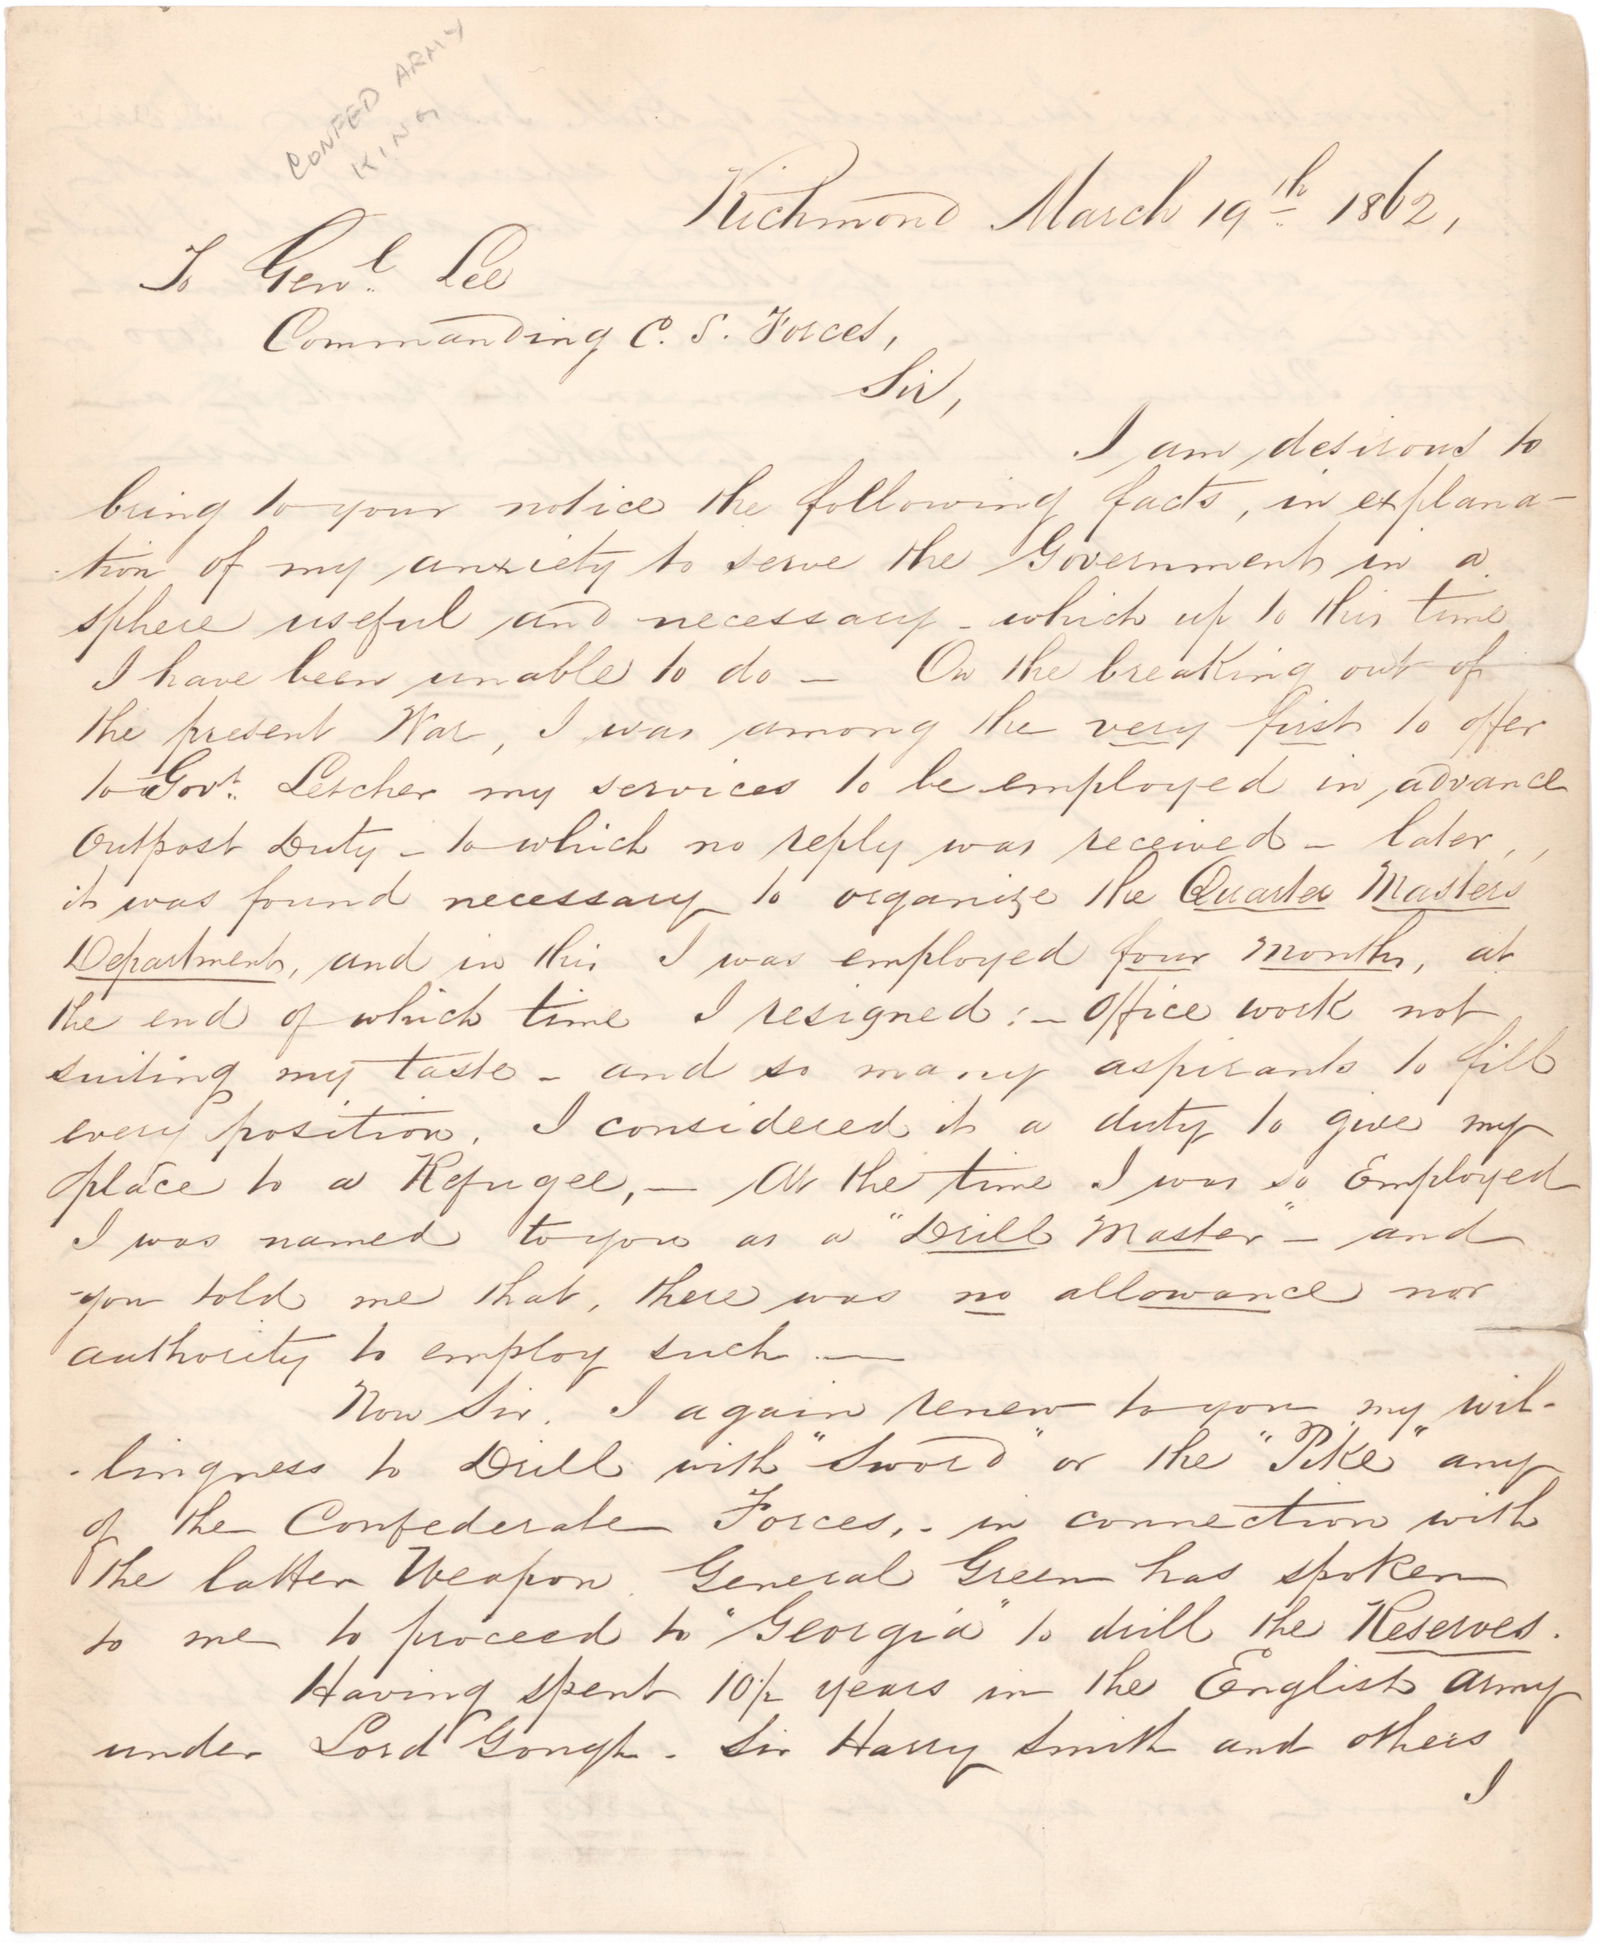 CONFED ARMY
KING
Richmond March 19th 1862,
To Genl. Lee
Commanding C. S. Forces,
Sir,
I am desirous to
bring to your notice the following facts, in explana-
-tion of my anxiety to serve the Government in a
sphere useful and necessary - which up to this time
I have been unable to do — On the breaking out of
the present War, I was among the very first to offer
to Govr. Letcher my services to be employed in advance
Outpost Duty - to which no reply was received - later,,
it was found necessary to organize the Quarter Masters
Department, and in this I was employed four months, at
the end of which time I resigned :- Office work not
suiting my taste - and so many aspirants to fill
every position. I considered it a duty to give my
place to a Refugee, — At the time I was so Employed
I was named to you as a "Drill Master" - and
you told me that, there was no allowance nor
authority to employ such. —
Now Sir. I again renew to you my wil-
-lingness to Drill with "Sword" or the "Pike" any
of the Confederate Forces, - in connection with
the latter Weapon. General Green has spoken
to me to proceed to "Georgia" to drill the Reserves.
Having spent 10½ years in the English Army
under Lord Gough - Sir Harry Smith and others
I